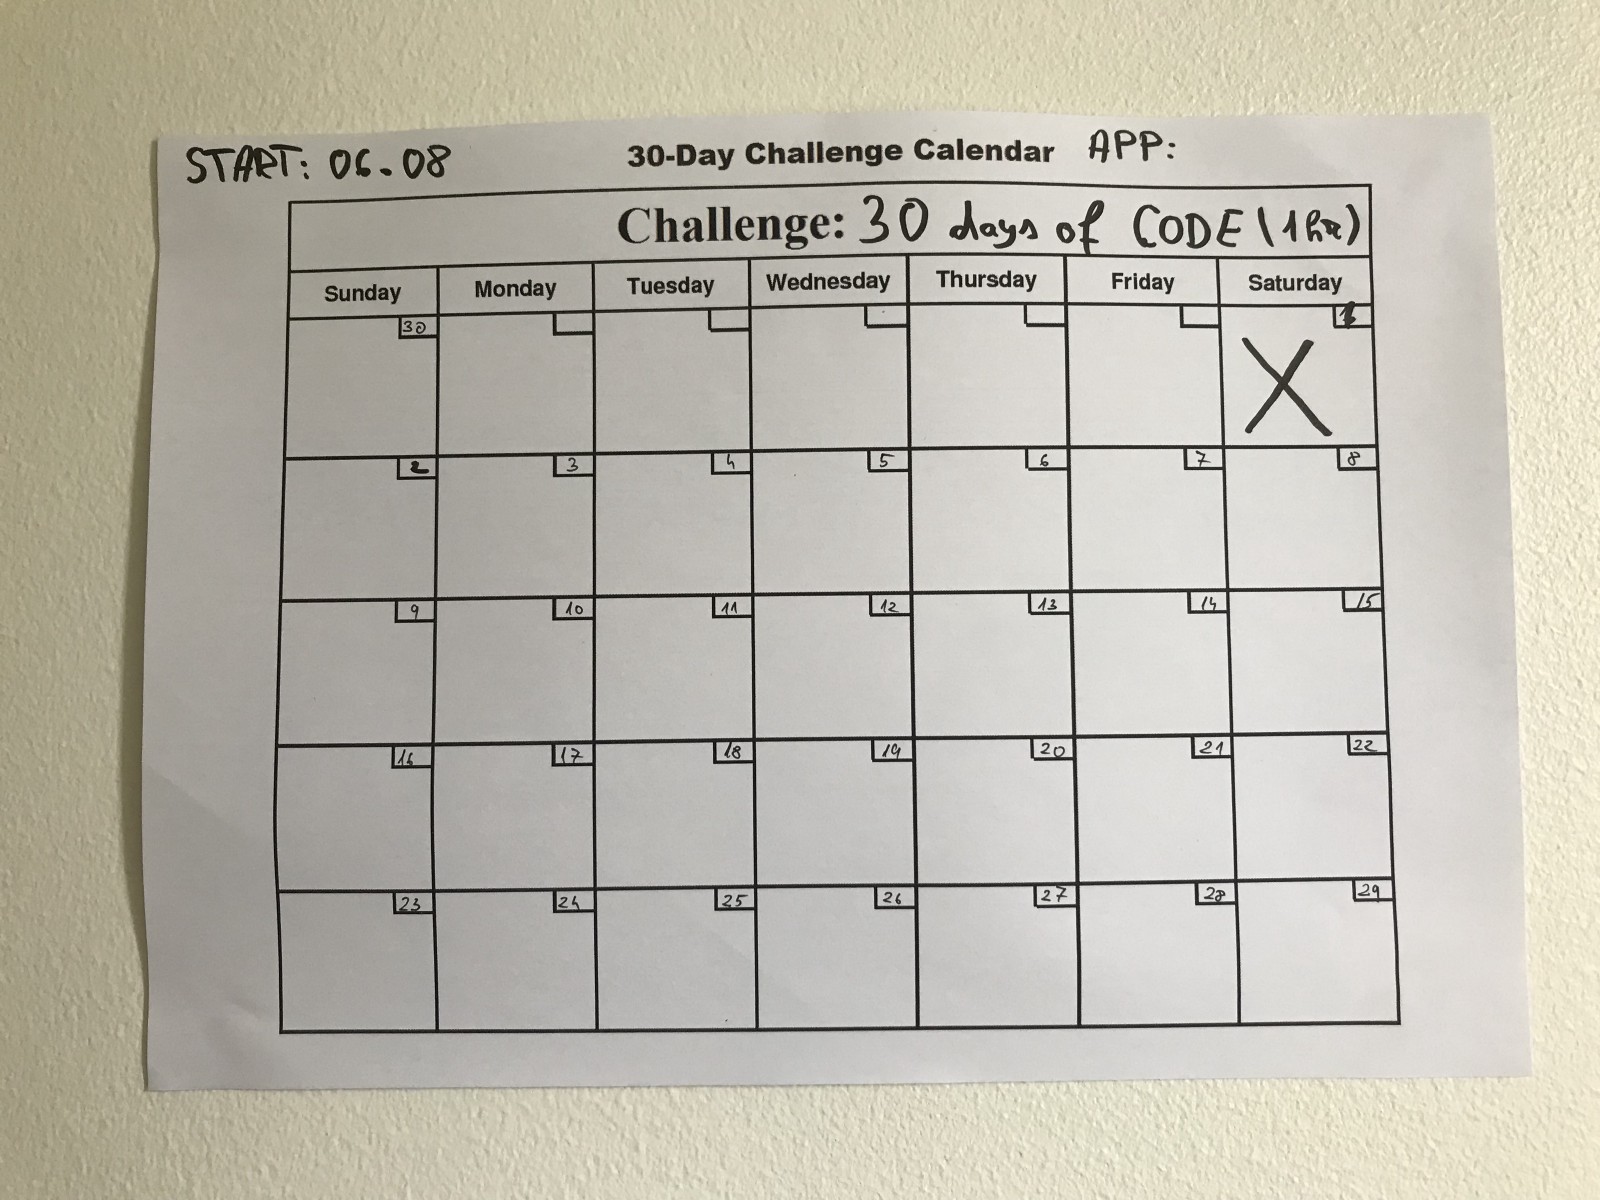 START: 06.08 30-Day Challenge Calendar APP:
Challenge: 30 days of CODE (1hr)
Sunday Monday Tuesday Wednesday Thursday Friday Saturday
30 1
X
2 3 4 5 6 7 8
9 10 11 12 13 14 15
16 17 18 19 20 21 22
23 24 25 26 27 28 29